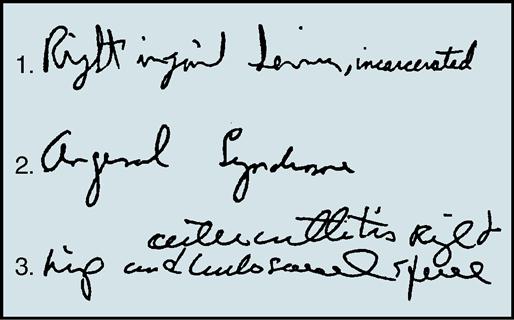 1. Right inguinal hernia, incarcerated
2. Anginal Syndrome
Right
3. hip and lumbosacral spine